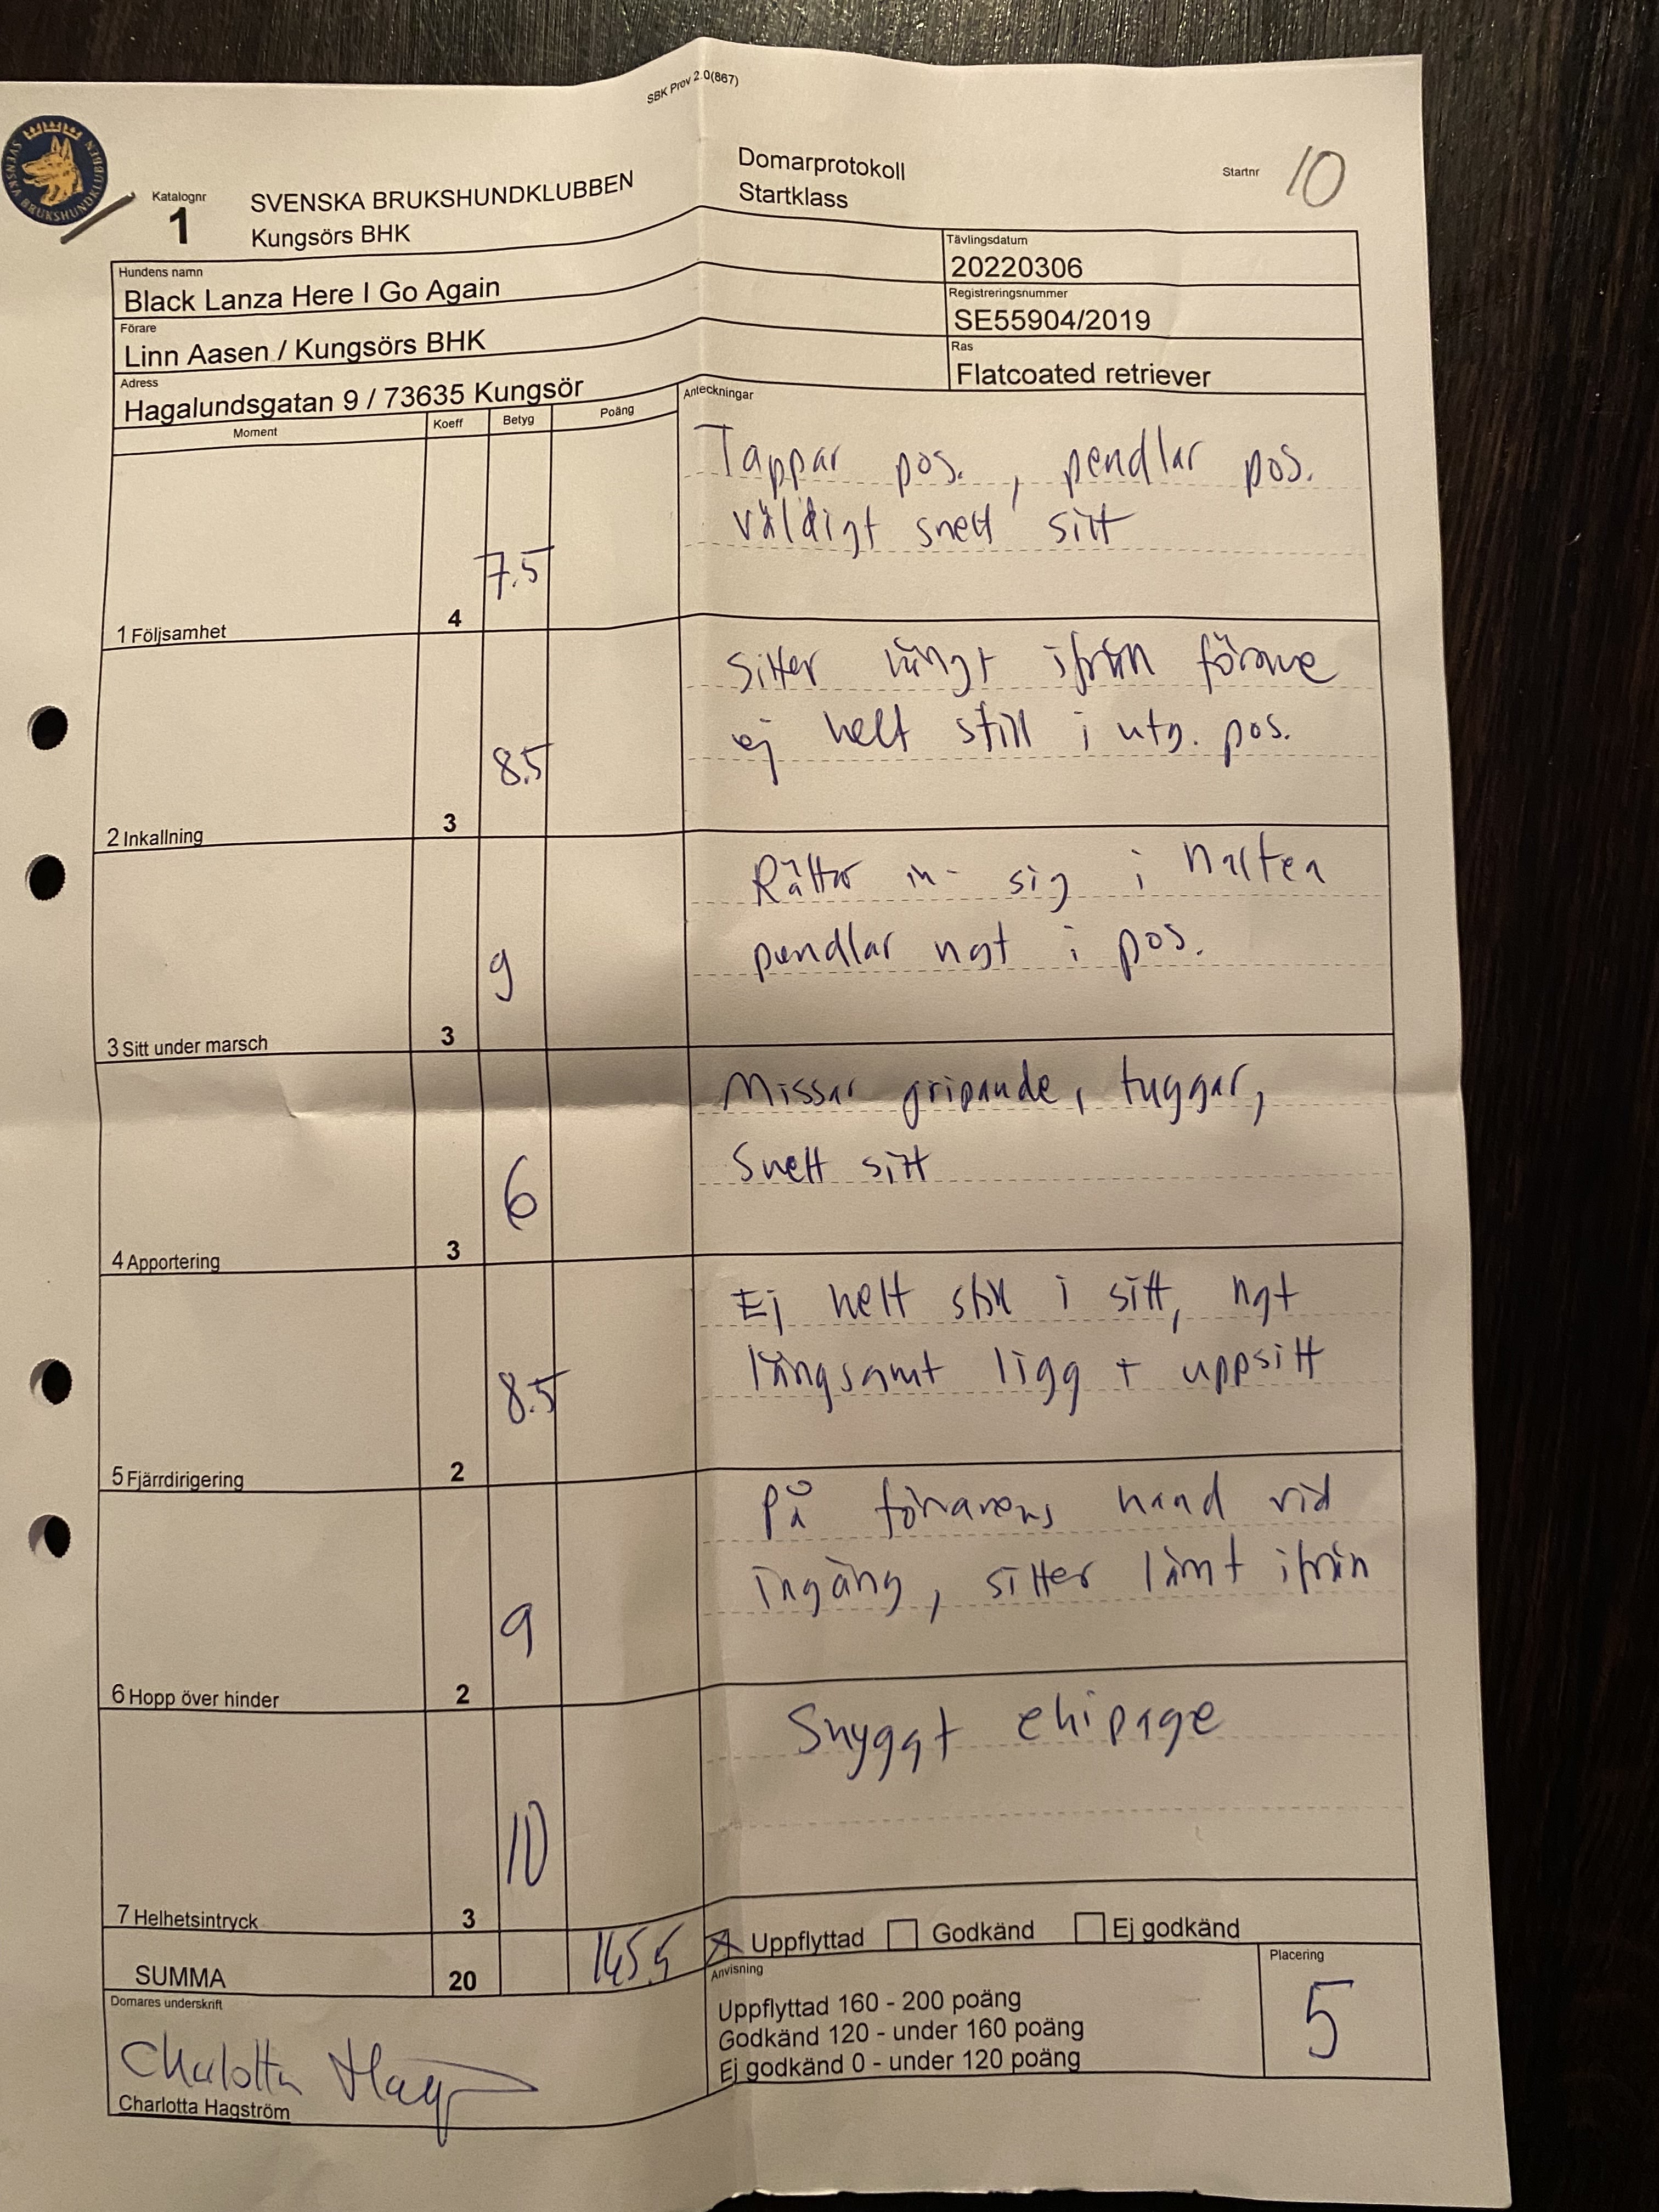 SBK Prov 2.0(867)
SVENSKA BRUKSHUNDKLUBBEN
Katalognr
1
SVENSKA BRUKSHUNDKLUBBEN
Kungsörs BHK
Domarprotokoll
Startklass
Startnr
10
Hundens namn
Black Lanza Here I Go Again
Tävlingsdatum
20220306
Förare
Linn Aasen / Kungsörs BHK
Registreringsnummer
SE55904/2019
Adress
Hagalundsgatan 9 / 73635 Kungsör
Ras
Flatcoated retriever
Moment Koeff Betyg Poäng Anteckningar
Tappar pos., pendlar pos.
väldigt snett sitt
1 Följsamhet 4 7.5
Sitter långt ifrån förare
ej helt still i utg. pos.
2 Inkallning 3 8.5
Rättar in sig i halten
pendlar ngt i pos.
3 Sitt under marsch 3 9
Missar gripande, tuggar,
Snett sitt
4 Apportering 3 6
Ej helt still i sitt, ngt
långsamt ligg + uppsitt
5 Fjärrdirigering 2 8.5
På förarens hand vid
ingång, sitter långt ifrån
6 Hopp över hinder 2 9
Snyggt ekipage
7 Helhetsintryck 3 10
SUMMA 20
Uppflyttad Godkänd Ej godkänd
Anvisning
Uppflyttad 160 - 200 poäng
Godkänd 120 - under 160 poäng
Ej godkänd 0 - under 120 poäng
Placering
5
Domares underskrift
Charlotta Hag
Charlotta Hagström